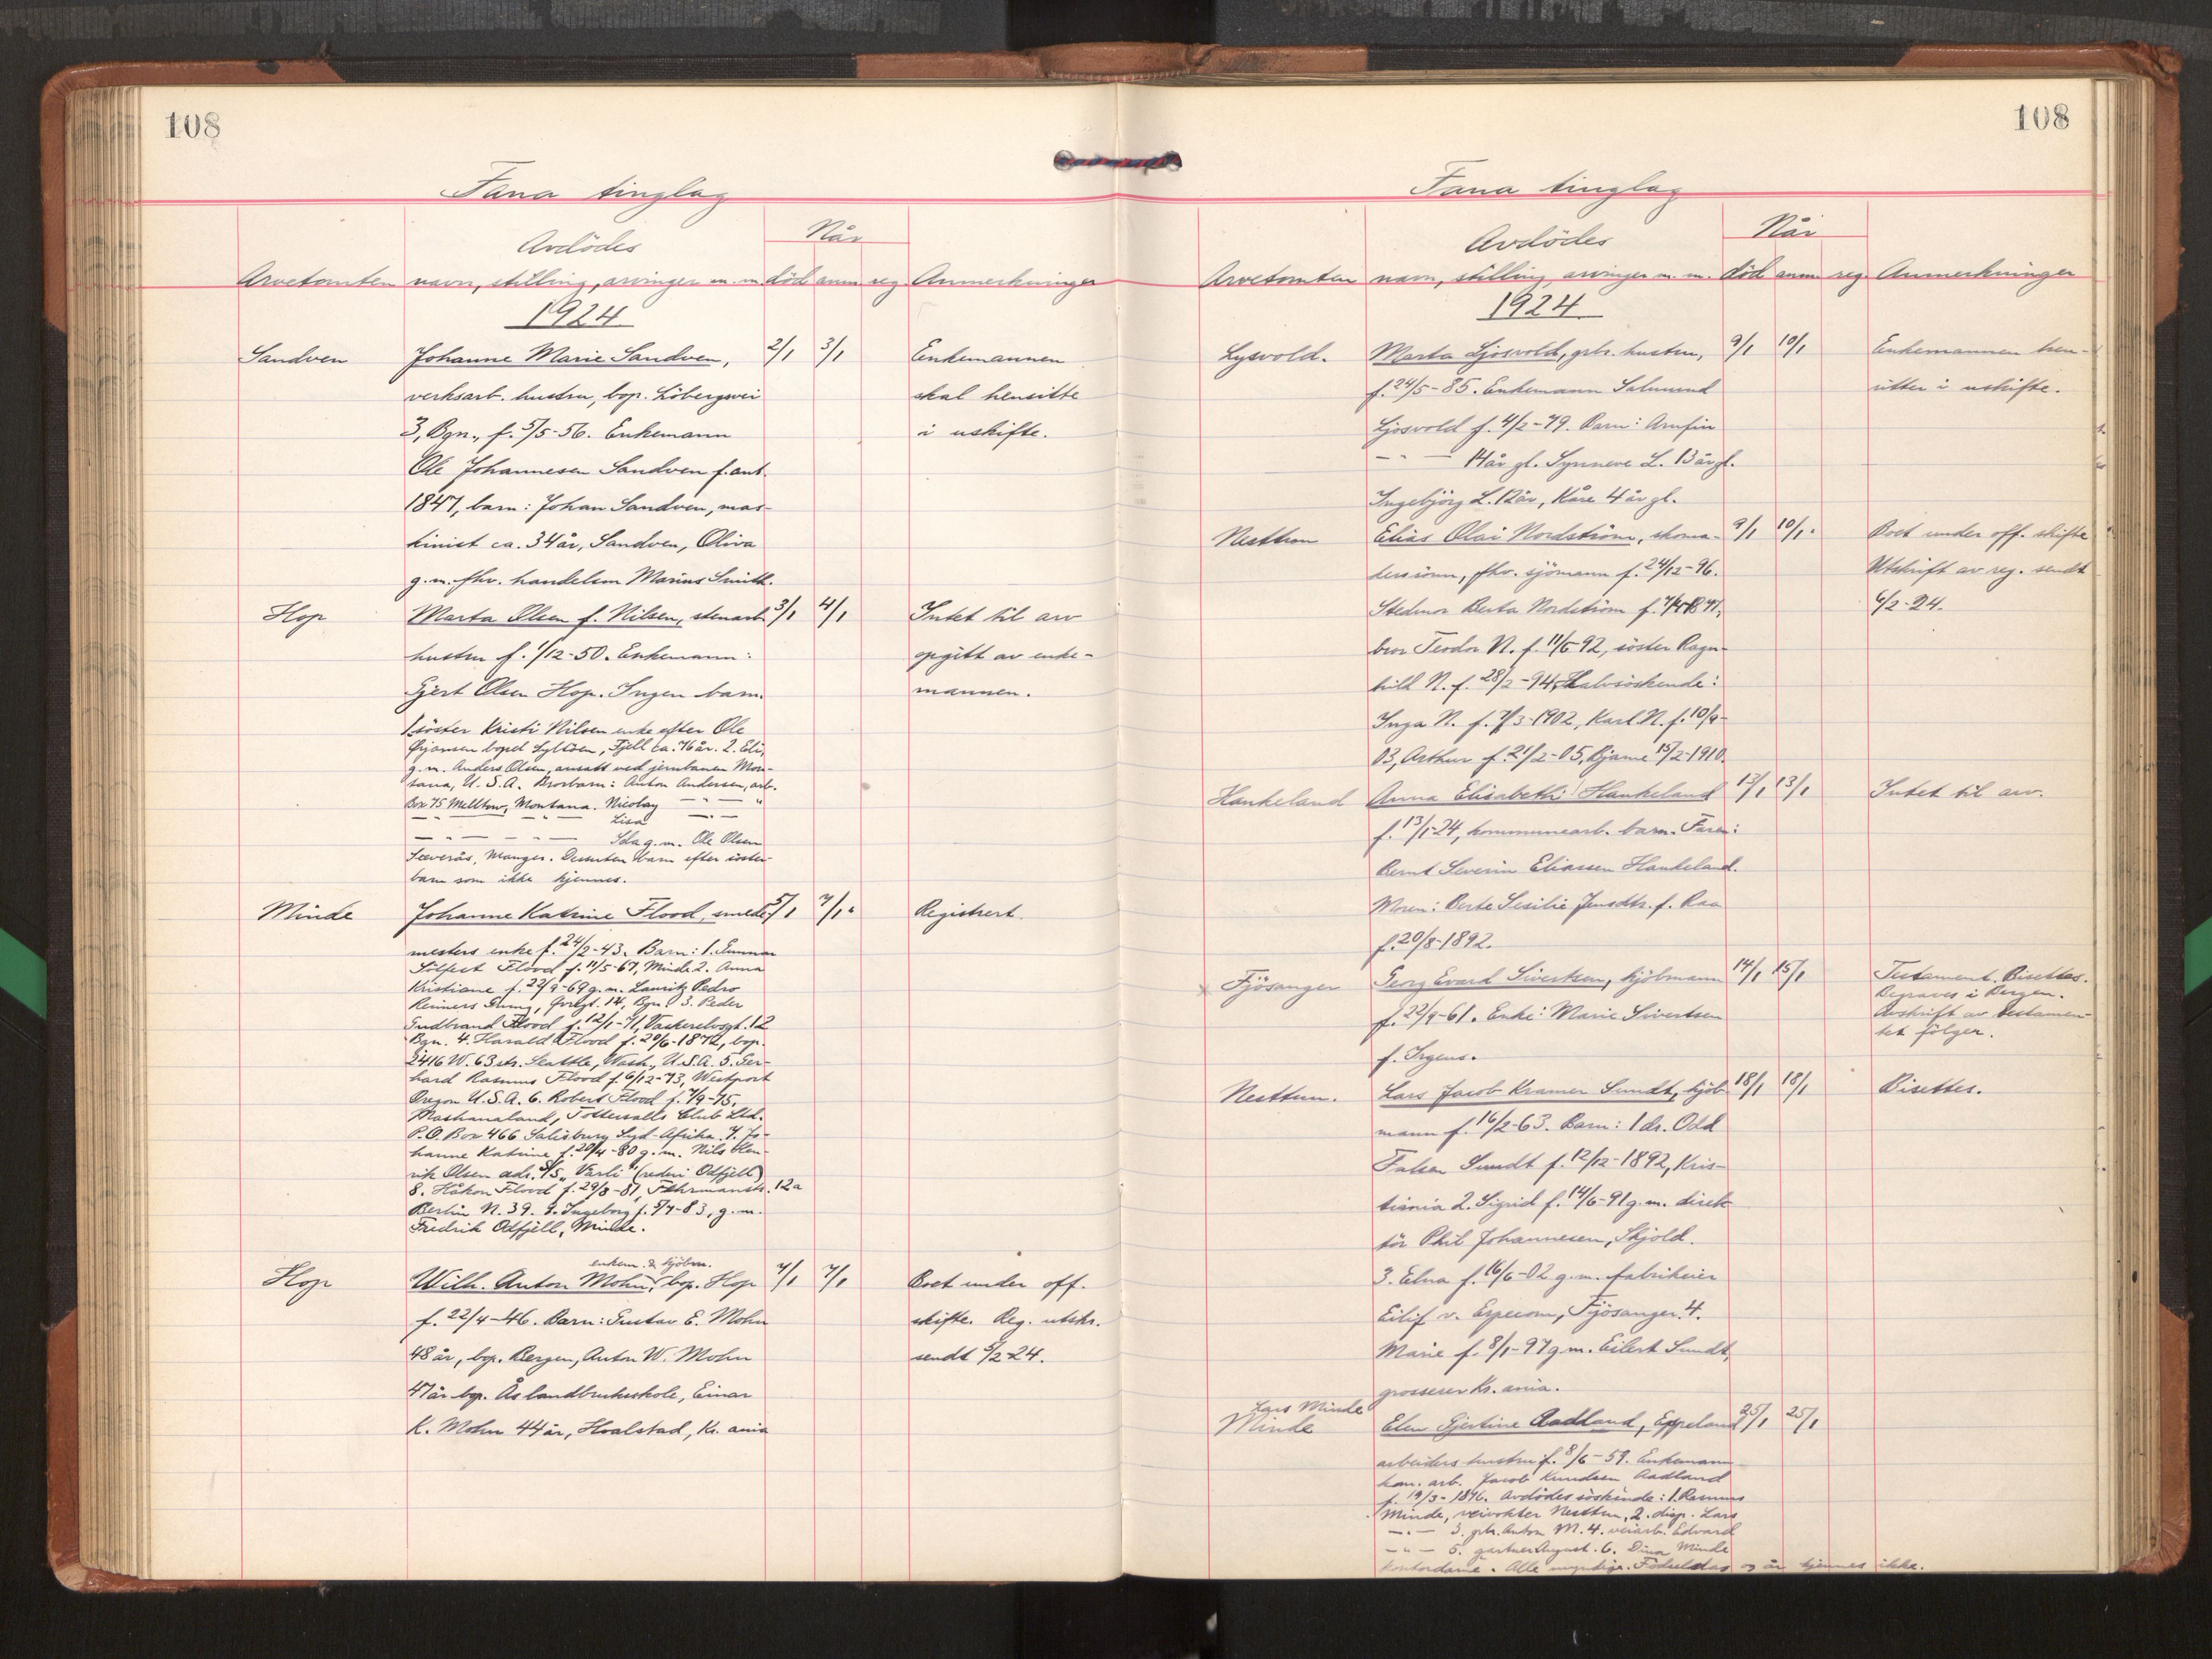 108
Fana tinglag
Når
Avdödes
Arvetomten navn, stilling, arvinger m. m. död anm reg. Anmerkninger
1924
Sandven Johanne Marie Sandven, 2/1 3/1 Enkemannen
verksarb. hustru, bop. Löbergsvei skal hensitte
3, Bgn., f. 5/5-56. Enkemann i uskifte.
Ole Johannesen Sandven f. ant.
1847, barn: Johan Sandven, mas-
kinist ca. 34 år, Sandven, Oliva
g. m. fhv. handelsm Marius Smith.
Hop Marta Olsen f. Nilsen, stenarb. 3/1 4/1 Intet til arv
hustru f. 1/12-50. Enkemann: opgitt av enke-
Gjert Olsen Hop. Ingen barn. mannen.
1 söster Kristi Nilsen enke efter Ole
bopel Fjell ca. 76 år. 2. Eli,
g. m. Anders Olsen, ansatt ved jernbanen Mon-
tana, U. S. A. Brorbarn: Anton Andersen, arb.
Box 75 Melltow, Montana. Nicolay — " — "
— " — — " — Lisa — " —
— " — — " — Ida g. m. Ole Olsen
Sæveräs, Manger. Desuten barn efter söster-
barn som ikke kjennes.
Minde Johanne Katrine Flood, smede- 5/1 7/1. Registrert.
mesters enke f. 24/2-43. Barn: 1. Gunnar
Sölfest Flood f. 11/5-67, Minde 2. Anna
Kristiane f. 22/9-69 g. m. Lauritz Pedro
Reimers 14, Bgn. 3. Peder
Gudbrand Flood f. 12/1-71, Vaskerelvsgt. 12
Bgn. 4. Harald Flood f. 20/6-1872, bop.
2416 W. 63 str. Seattle, Wash., U.S.A. 5. Ger-
hard Rasmus Flood f. 6/12-73, Westport
Oregon U.S.A. 6. Robert Flood f. 7/9-75,
Mashanaland, Tottersalls Club Ltd.
P.O. Box 466 Salisbury Syd-Afrika. 7. Jo-
hanne Katrine f. 20/4-80 g. m. Nils Hen-
rik Olsen adr. S/S "Varli" (rederi Odfjell)
8. Håkon Flood f. 29/8-81, Fehrmanstr. 12a
Berlin N. 39. 9. Ingeborg f. 5/7-83, g. m.
Fredrik Odfjell, Minde.
enkem. & kjöbm.
Hop Wilh. Anton Mohn, bop. Hop 7/1 7/1 Boet under off.
f. 22/4-46. Barn: Gustav E. Mohn skifte. Reg. utskr.
48 år, bop. Bergen, Anton W. Mohn sendt 5/2-24.
47 år bop. Ås landbrukskole, Einar
K. Mohn 44 år, Hvalstad, Kr. ania
108
Fana tinglag
Når
Avdödes
Arvetomten navn, stilling, arvinger m. m. död anm reg. Anmerkninger
1924
Lysvold. Marta Ljosvold, grbr. hustru, 9/1 10/1 Enkemannen hen-
f. 24/5-85. Enkemann Salmund sitter i uskifte.
Ljosvold f. 4/2-79. Barn: Arnfin
— " — 14 år gl. Synneve L. 13 år gl.
Ingebjörg L. 12 år, Kåre 4 år gl.
Nesttun Elias Olai Nordström, skoma- 9/1 10/1. Boet under off. skifte
kersönn, fhv. sjömann f. 24/12-96. Utskrift av reg. sendt
Stedmor Berta Nordström f. 1871, 6/2-24.
bror Teodor N. f. 11/6 92, söster Ragn-
hild N. f. 28/2-94, Halvsöskende:
Inga N. f. 7/3-1902, Karl N. f. 10/9-
03, Arthur f. 21/2-05, Bjarne 15/2-1910.
Haukeland Anna Elisabeth Haukeland 13/1 13/1 Intet til arv.
f. 13/1-24, kommunearb. barn. Faren:
Bernt Severin Eliassen Haukeland.
Moren: Berte Sesilie Jensdtr. f. Raa
f. 20/8-1892.
Fjösanger Georg Evard Sivertsen, kjöbmann 14/1 15/1 Testament. Bisettes.
f. 22/9-61. Enke: Marie Sivertsen Begraves i Bergen.
f. Irgens. Avskrift av testamen-
tet fölger.
Nesttun. Lars Jacob Kramer Sundt, kjöb- 18/1 18/1 Bisettes.
mann f. 16/2-63. Barn: 1 dr. Odd
Falsen Sundt f. 12/12-1892, Kris-
tiania 2. Sigrid f. 14/6-91 g. m. direk-
tör Phil Johannesen, Skjold.
3. Elna f. 16/6-02 g. m. fabrikeier
Eilif v. Erpecom, Fjösanger. 4.
Marie f. 8/1-97 g m. Eilert Sundt,
grosserer Kr. ania.
Lars Minde
Minde Elen Gjertine Aadland, Eppeland 25/1 25/1
arbeiders hustru f. 8/6-59. Enkemann
kom. arb. Jacob Knudsen Aadland
f. 19/3-1876. Avdödes söskende: 1. Rasmus
Minde, veivokter Nesttun, 2. disp. Lars
— " — 3. gbr. Anton M. 4. veiarb. Edvard
— " — 5. gartner August. 6. Dina Minde
kontordame. Alle myndige. Födselsdag og år kjennes ikke.